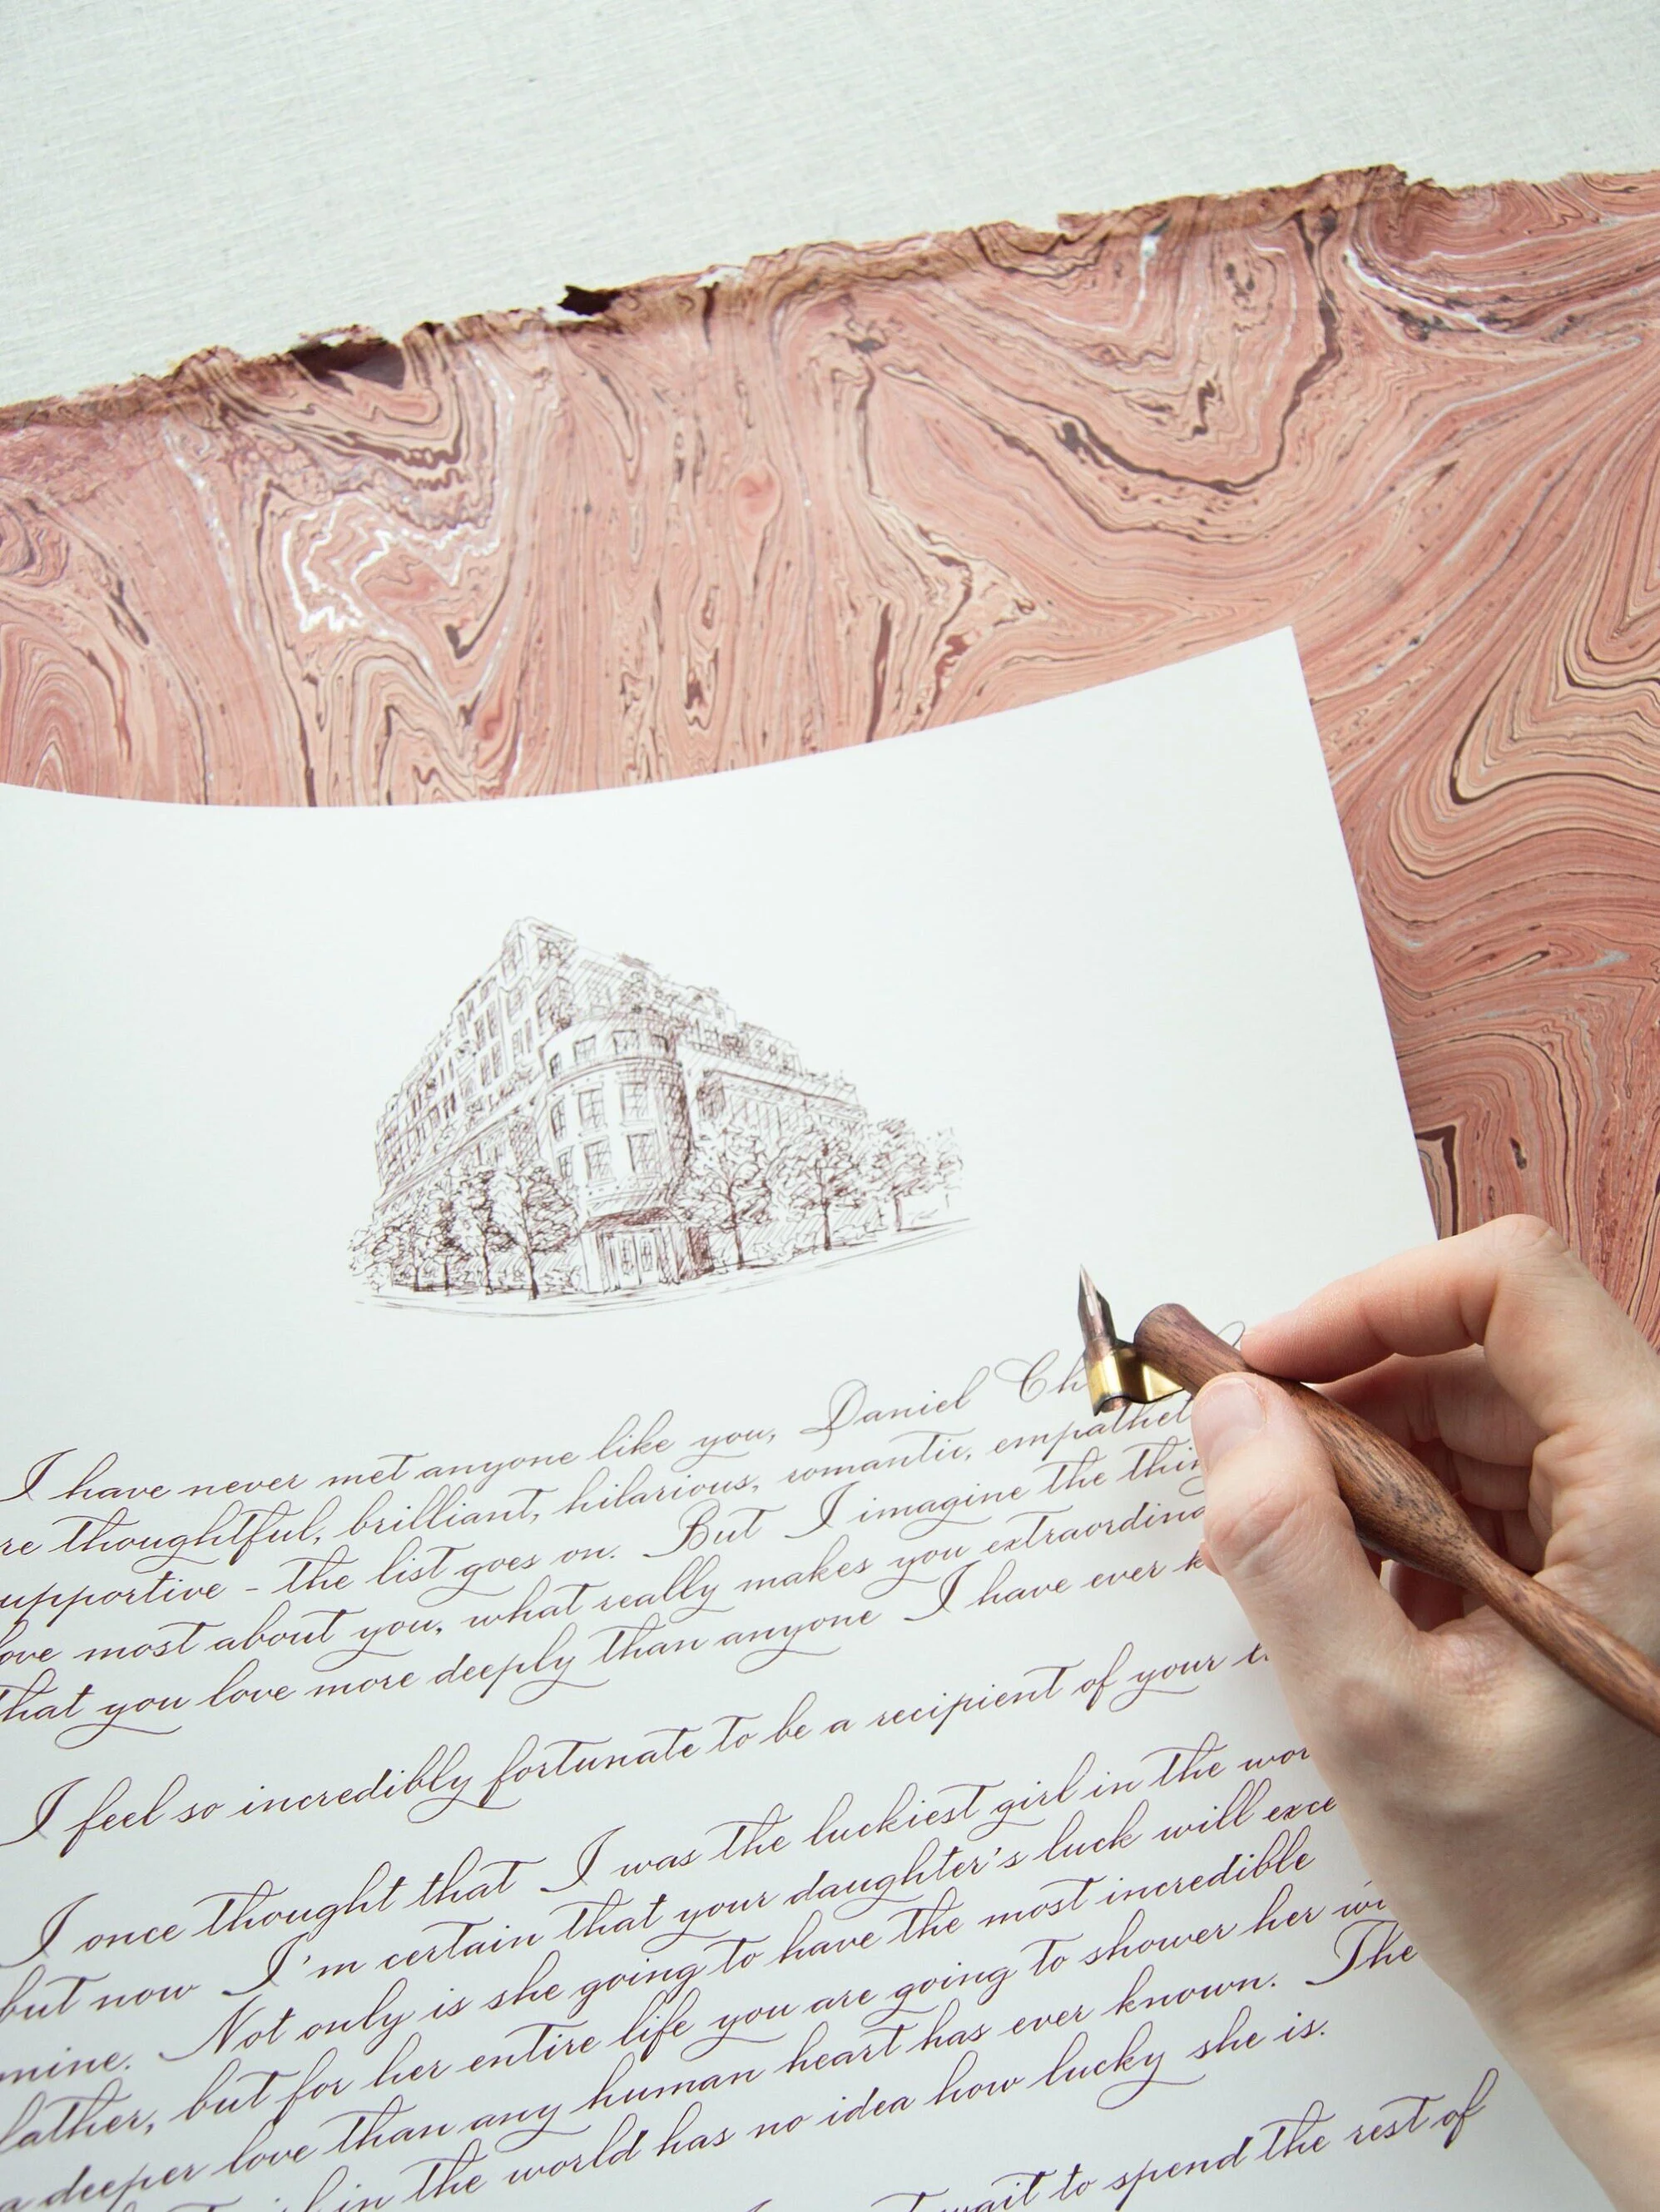 I have never met anyone like you, Daniel
thoughtful, brilliant, hilarious, romantic,
supportive - the list goes on. But I imagine the
love most about you, what really makes you
that you love more deeply than anyone I have ever
I feel so incredibly fortunate to be a recipient of your
I once thought that I was the luckiest girl in the
but now I'm certain that your daughter's luck will
mine. Not only is she going to have the most incredible
father, but for her entire life you are going to shower her
a deeper love than any human heart has ever known. The
in the world has no idea how lucky she is.
wait to spend the rest of